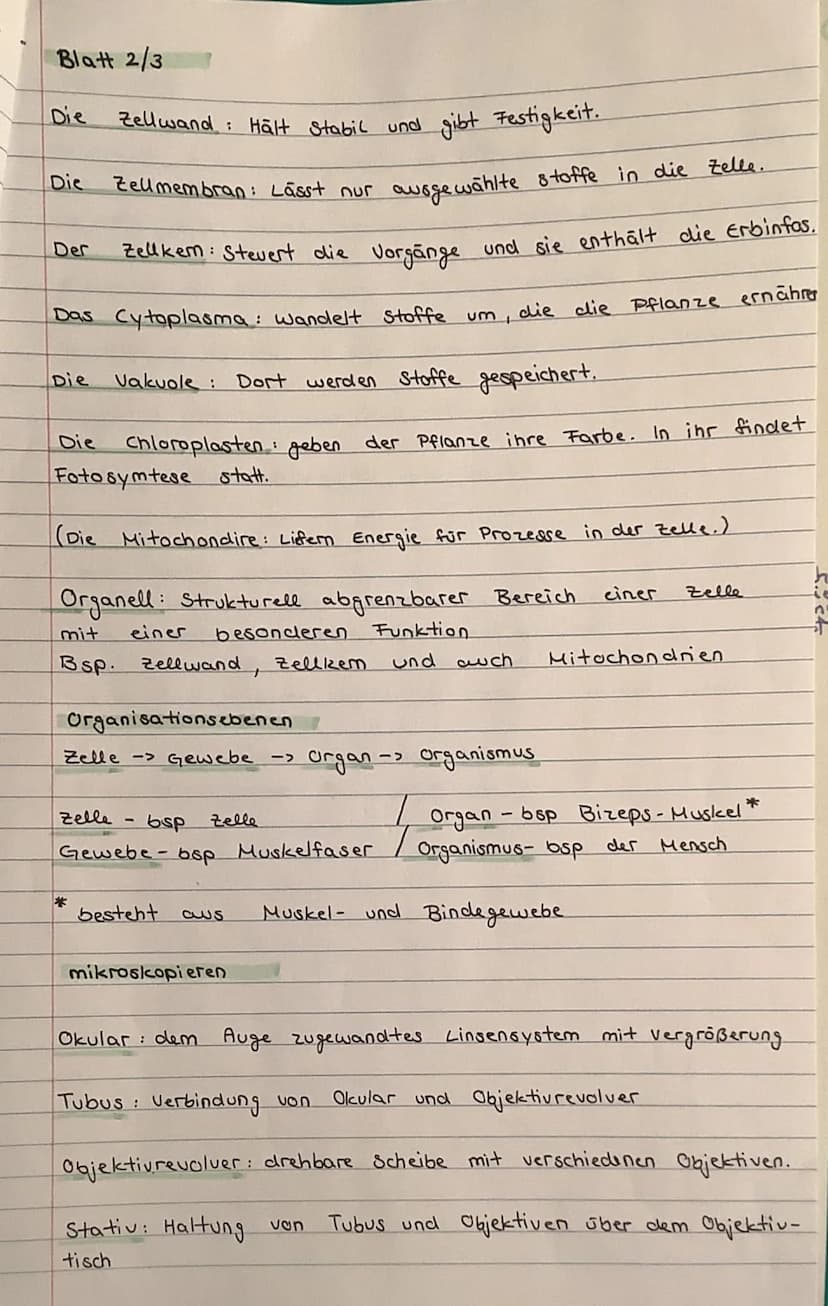 Blatt 2/3
Die Zellwand : Hält Stabil und gibt Festigkeit.
Die Zellmembran : Lässt nur ausgewählte Stoffe in die Zelle.
Der Zellkern : Steuert die Vorgänge und sie enthält die Erbinfos.
Das Cytoplasma : wandelt Stoffe um, die die Pflanze ernähren
Die Vakuole : Dort werden Stoffe gespeichert.
Die Chloroplasten : geben der Pflanze ihre Farbe. In ihr findet
Fotosymtese statt.
(Die Mitochondire : Liefern Energie für Prozesse in der Zelle.)
Organell : Strukturell abgrenzbarer Bereich einer Zelle
mit einer besonderen Funktion
Bsp. Zellwand, Zellkern und auch Mitochondrien
Organisationsebenen
Zelle -> Gewebe -> Organ -> Organismus
Zelle - bsp Zelle / Organ - bsp Bizeps-Muskel*
Gewebe - bsp Muskelfaser / Organismus - bsp der Mensch
* besteht aus Muskel- und Bindegewebe
mikroskopieren
Okular : dem Auge zugewandtes Linsensystem mit Vergrößerung
Tubus : Verbindung von Okular und Objektivrevolver
Objektivrevolver : drehbare Scheibe mit verschiedenen Objektiven.
Stativ : Haltung von Tubus und Objektiven über dem Objektiv-
tisch